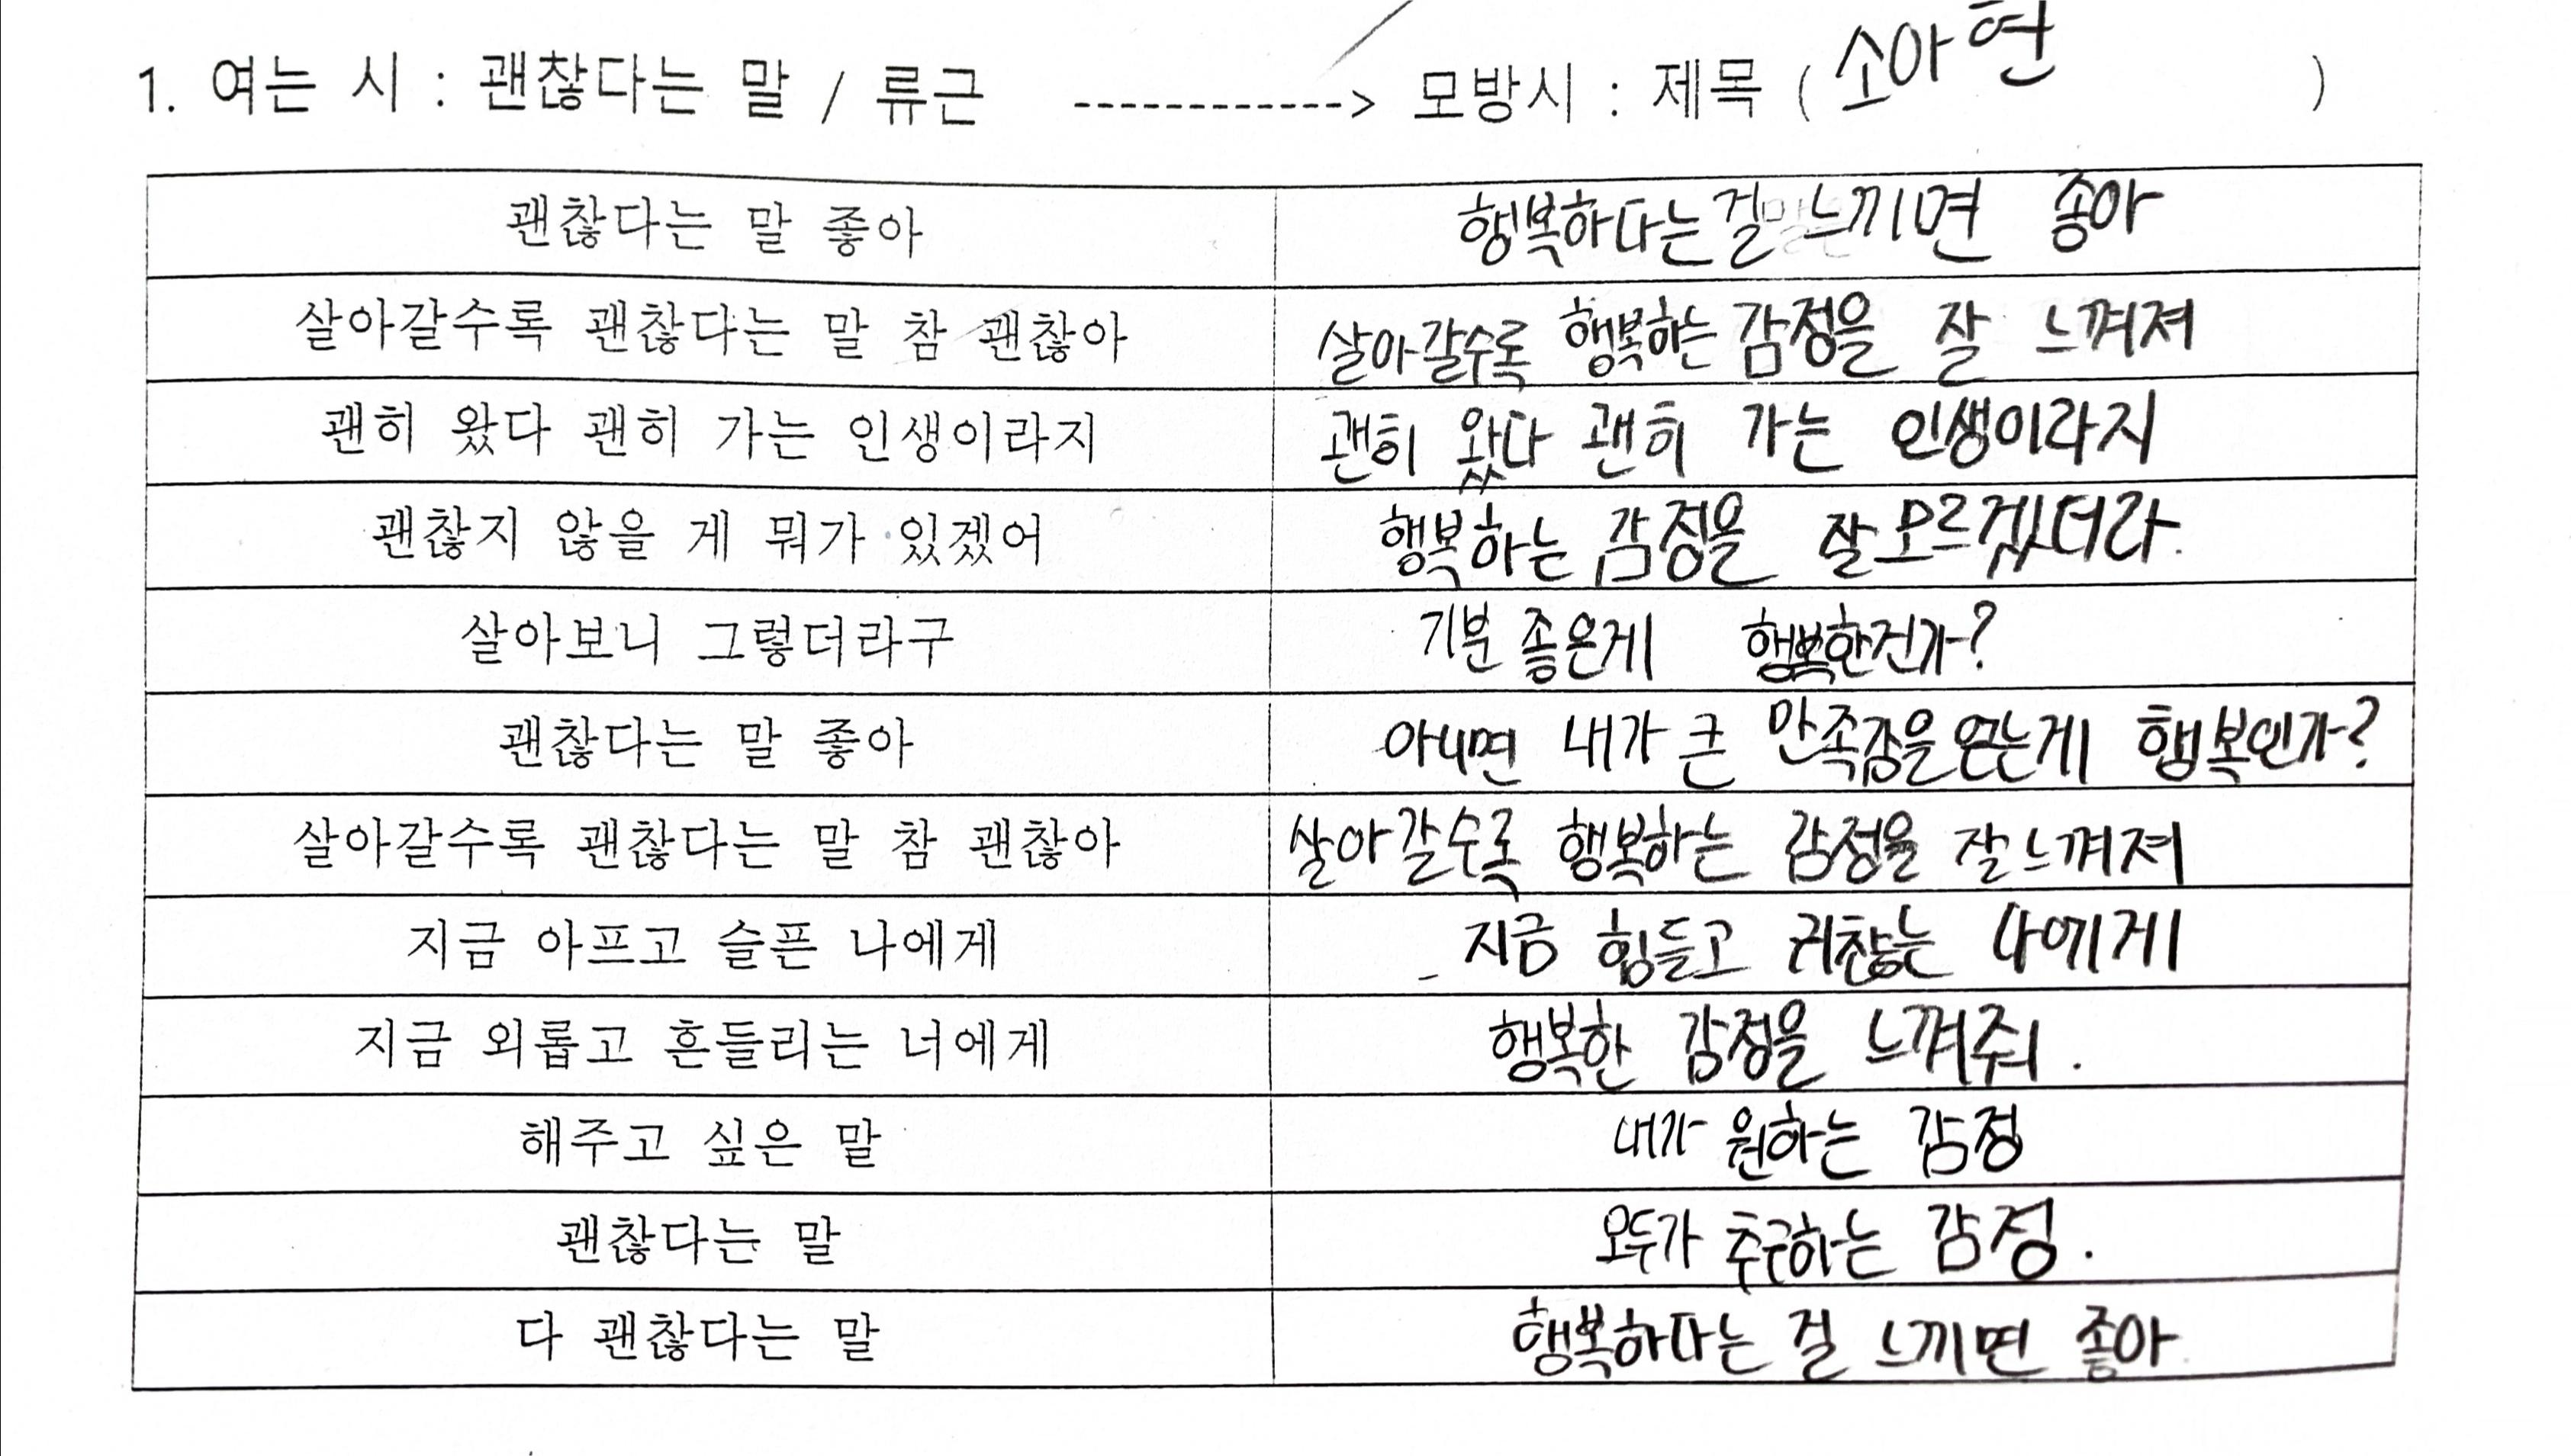 1. 여는 시 : 괜찮다는 말 / 류근 ------------> 모방시 : 제목 ( 소아현 )
괜찮다는 말 좋아 행복하다는 걸 느끼면 좋아
살아갈수록 괜찮다는 말 참 괜찮아 살아갈수록 행복하는 감정을 잘 느껴져
괜히 왔다 괜히 가는 인생이라지 괜히 왔다 괜히 가는 인생이라지
괜찮지 않을 게 뭐가 있겠어 행복하는 감정을 잘 모르겠더라
살아보니 그렇더라구 기분 좋은게 행복한건가?
괜찮다는 말 좋아 아니면 내가 큰 만족감을 얻는게 행복인가?
살아갈수록 괜찮다는 말 참 괜찮아 살아갈수록 행복하는 감정을 잘 느껴져
지금 아프고 슬픈 나에게 지금 힘들고 귀찮는 나에게
지금 외롭고 흔들리는 너에게 행복한 감정을 느껴줘.
해주고 싶은 말 내가 원하는 감정
괜찮다는 말 모두가 추구하는 감정.
다 괜찮다는 말 행복하다는 걸 느끼면 좋아